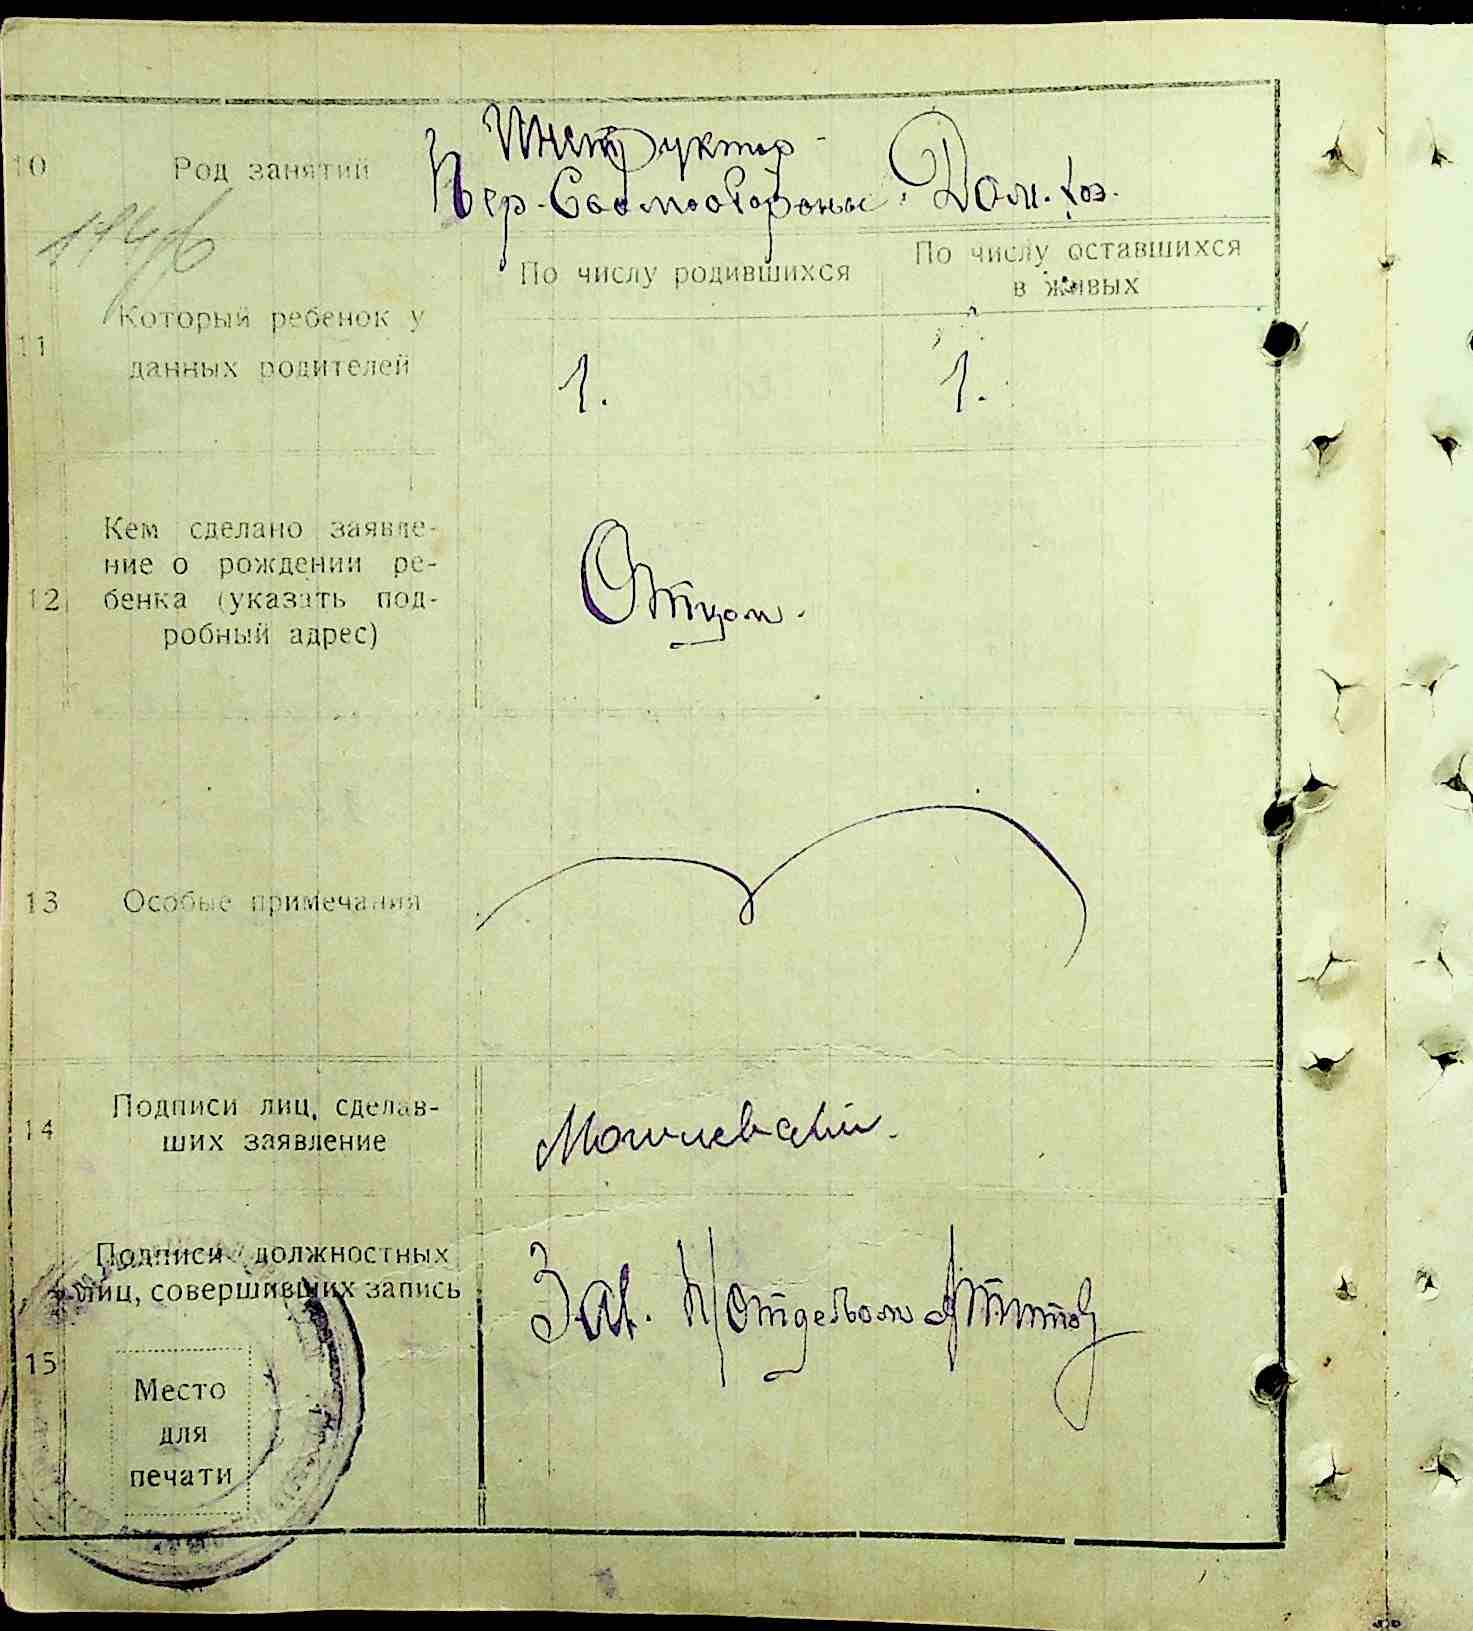 10 Род занятий
Инструктор
Пер. Самообороны. Дом. хоз.
По числу родившихся
По числу оставшихся
в живых
11 Который ребенок у
данных родителей
1. 1.
12 Кем сделано заявле-
ние о рождении ре-
бенка (указать под-
робный адрес)
Отцом.
13 Особые примечания
14 Подписи лиц, сделав-
ших заявление
15 Подписи должностных
лиц, совершивших запись
Зав. П/отделом
Место
для
печати